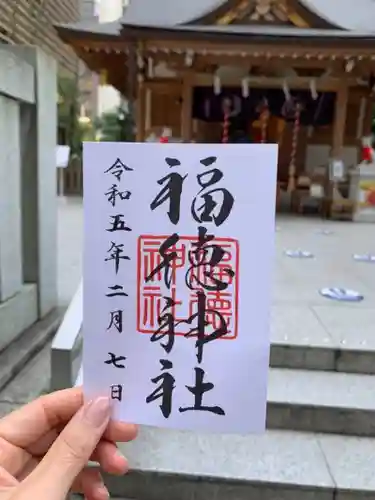 福徳神社
福徳
神社
令和五年二月七日